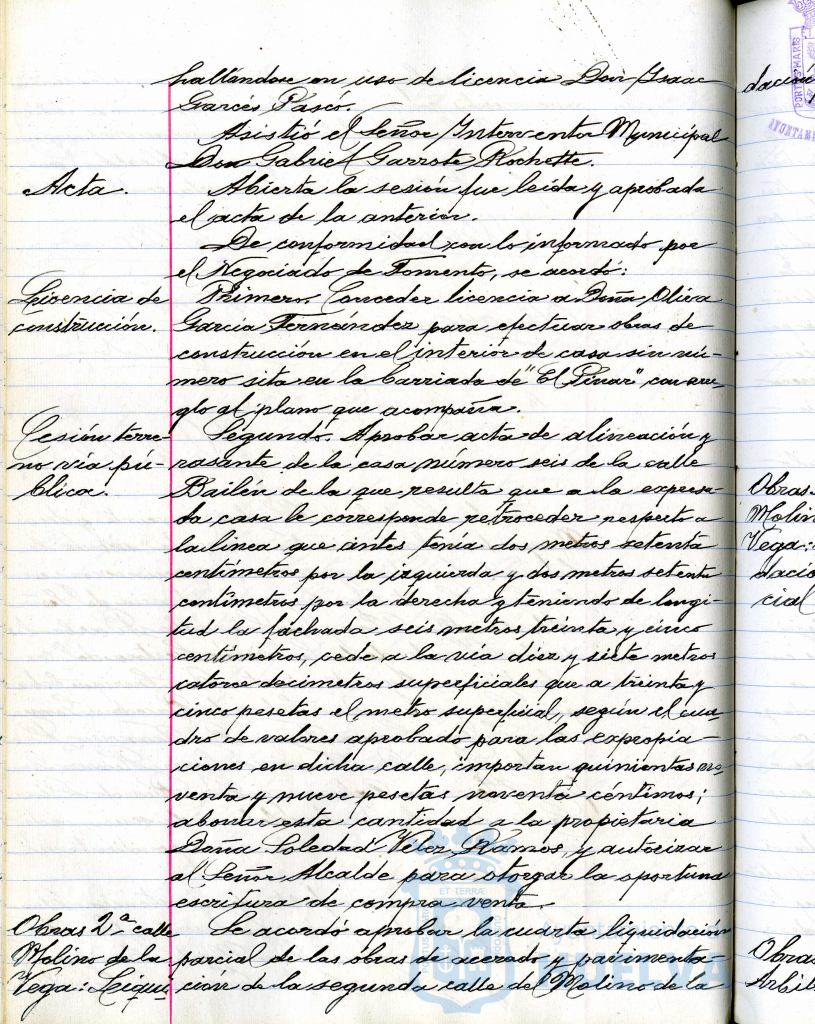 hallándose en uso de licencia Don Isaac
Garcés Pascó.
Asistió el Señor Interventor Municipal
Don Gabriel Garrote Rochette.
Acta.
Abierta la sesión fue leida y aprobada
el acta de la anterior.
De conformidad con lo informado por
el Negociado de Fomento, se acordó:
Licencia de
construcción.
Primero. Conceder licencia a Doña Oliva
García Fernández para efectuar obras de
construcción en el interior de casa sin nú-
mero sita en la barriada de "El Pinar" con arre-
glo al plano que acompaña.
Cesión terre-
no vía pú-
blica.
Segundo. Aprobar acta de alineación y
rasante de la casa número seis de la calle
Bailén de la que resulta que a la expresa-
da casa le corresponde retroceder respecto a
la linea que antes tenía dos metros setenta
centímetros por la izquierda y dos metros setenta
centímetros por la derecha y teniendo de longi-
tud la fachada seis metros treinta y cinco
centímetros, cede a la vía diez y siete metros
catorce decimetros superficiales que a treinta y
cinco pesetas el metro superficial, según el cua-
dro de valores aprobado para las expropia-
ciones en dicha calle, importan quinientas no-
venta y nueve pesetas noventa céntimos;
abonar esta cantidad a la propietaria
Doña Soledad Velez Ramos, y autorizar
al Señor Alcalde para otorgar la oportuna
escritura de compra venta.
Obras 2ª calle
Molino de la
Vega: Liqui
Se acordó aprobar la cuarta liquidación
parcial de las obras de acerado y pavimenta-
ción de la segunda calle del Molino de la
dación
Obras
Molino
Vega:
dació
cial
Obras
Arbi
PORTUS MARIS
AYUNTAM
ET TERRÆ
Ayuntamiento
HUELVA